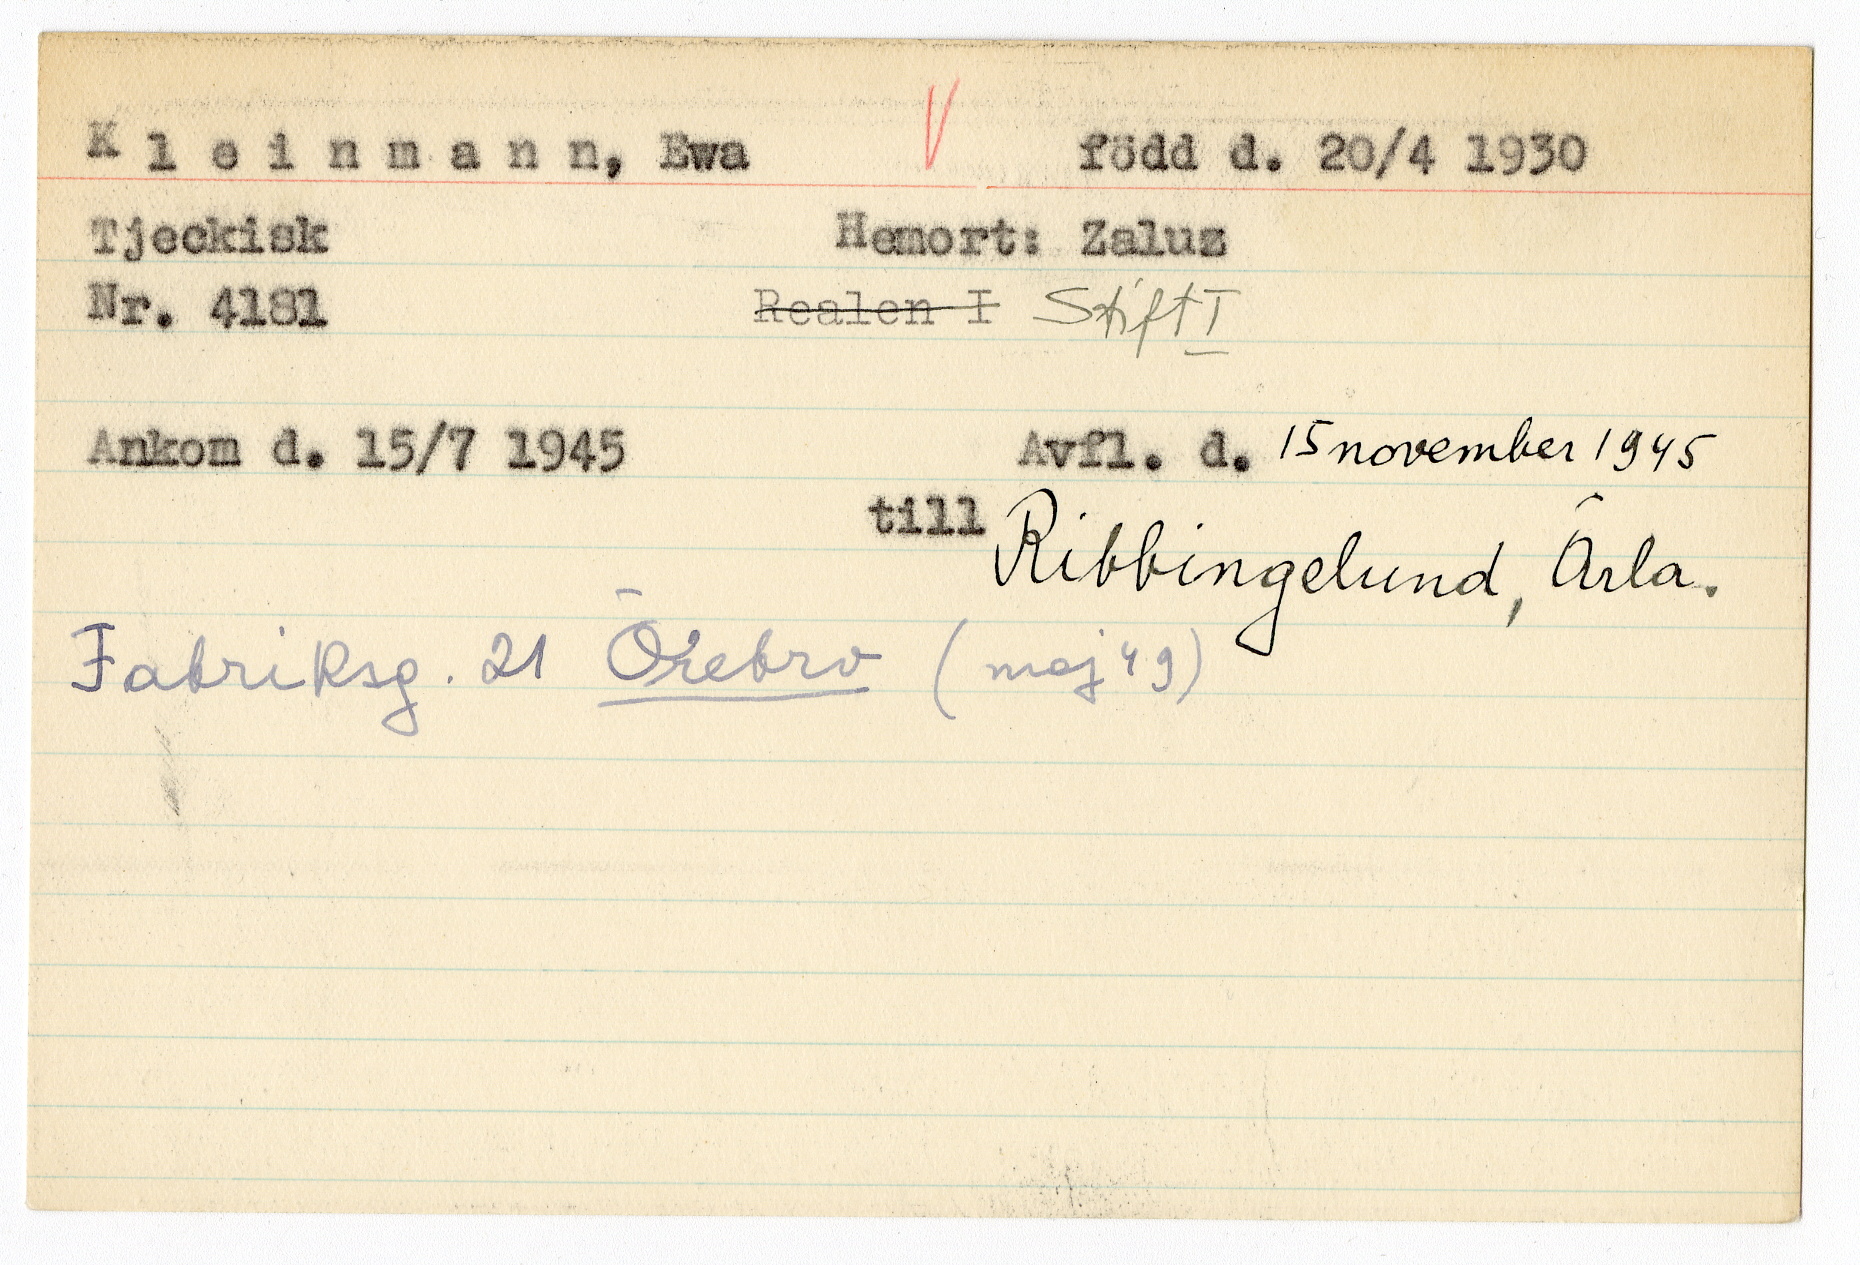 Kleinmann, Ewa född d. 20/4 1930
Tjeckisk Hemort: Zaluz
Nr. 4181 Realen I Stift I
Ankom d. 15/7 1945 Avfl. d. 15 november 1945
till Ribbingelund, Ärla.
Fabriksg. 21 Örebro (maj 49)